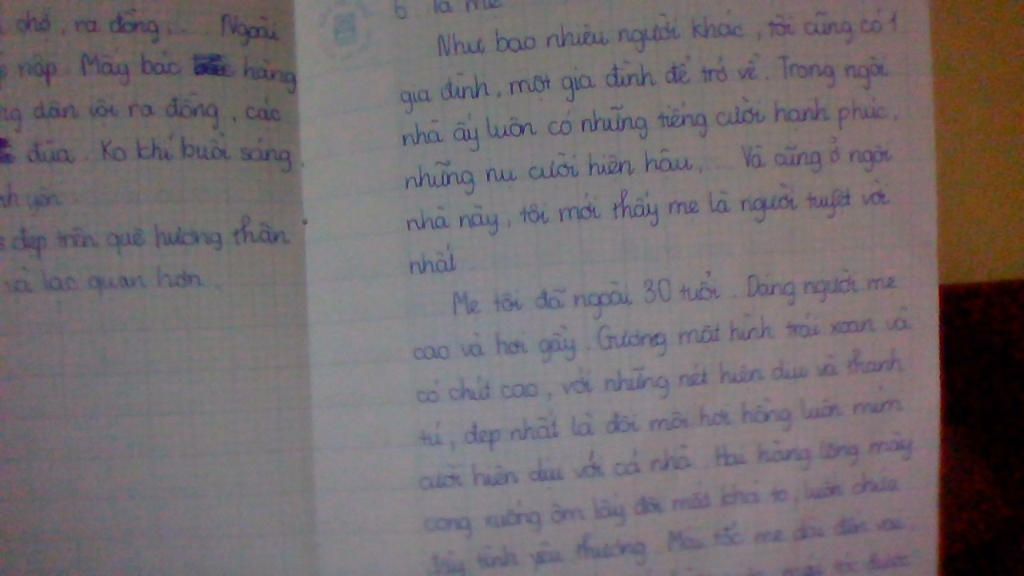 chỏ, ra đồng,... Ngoài
nập. Mấy bác hàng
dân lôi ra đồng, các
đùa. Ko khí buổi sáng
yên.
đẹp trên quê hương thân
và lạc quan hơn.
6 Tả mẹ
Như bao nhiêu người khác, tôi cũng có 1
gia đình, một gia đình để trở về. Trong ngôi
nhà ấy luôn có những tiếng cười hạnh phúc,
những nụ cười hiền hậu,... Và cũng ở ngôi
nhà này, tôi mới thấy mẹ là người tuyệt vời
nhất
Mẹ tôi đã ngoài 30 tuổi. Dáng người mẹ
cao và hơi gầy. Gương mặt hình trái xoan và
có chút cao, với những nét hiền dịu và thanh
tú, đẹp nhất là đôi môi hơi hồng luôn mỉm
cười hiền dịu với cả nhà. Hai hàng lông mày
cong xuống ôm lấy đôi mắt khá to, luôn chứa
đầy tình yêu thương. Mái tóc mẹ dài đến
tóc được